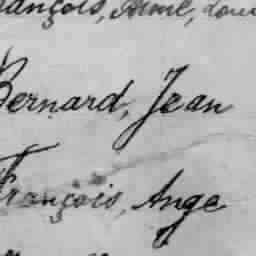 François, Aimé,
Bernard, Jean
François, Ange